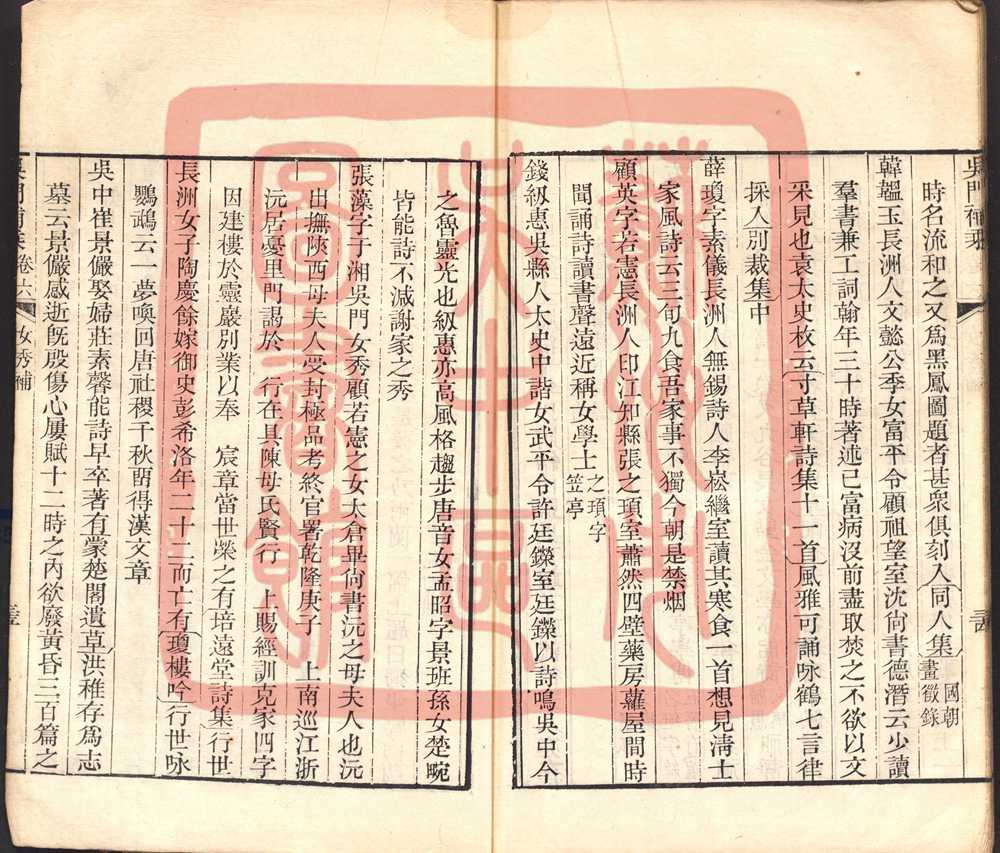 吳門補乘
時名流和之又爲黑鳳圖題者甚衆俱刻入同人集國朝畫徵錄
韓韞玉長洲人文懿公季女富平令顧祖望室沈尙書德潛云少讀
羣書兼工詞翰年三十時著述已富病沒前盡取焚之不欲以文
采見也袁太史枚云寸草軒詩集十一首風雅可誦咏鶴七言律
採入別裁集中
薛瓊字素儀長洲人無錫詩人李崧繼室讀其寒食一首想見淸士
家風詩云三旬九食吾家事不獨今朝是禁烟
顧英字若憲長洲人印江知縣張之頊室蕭然四壁藥房蘿屋間時
聞誦詩讀書聲遠近稱女學士之頊字笠亭
錢級惠吳縣人太史中諧女武平令許廷鑅室廷鑅以詩鳴吳中今
之魯靈光也級惠亦高風格趨步唐音女孟昭字景班孫女楚畹
皆能詩不減謝家之秀
張藻字于湘吳門女秀顧若憲之女太倉畢尙書沅之母夫人也沅
出撫陝西母夫人受封極品考終官署乾隆庚子　上南巡江浙
沅居憂里門謁於　行在具陳母氏賢行　上賜經訓克家四字
因建樓於靈巖別業以奉　宸章當世榮之有培遠堂詩集行世
長洲女子陶慶餘嫁御史彭希洛年二十二而亡有瓊樓吟行世咏
鸚鵡云一夢喚回唐社稷千秋留得漢文章
吳中崔景儼娶婦莊素馨能詩早卒著有蒙楚閣遺草洪稚存爲志
墓云景儼感逝旣殷傷心屢賦十二時之內欲廢黃昏三百篇之
卷六
女秀補